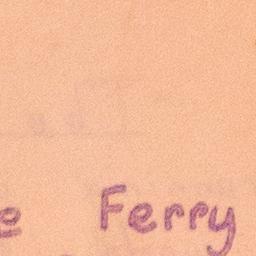 e Ferry